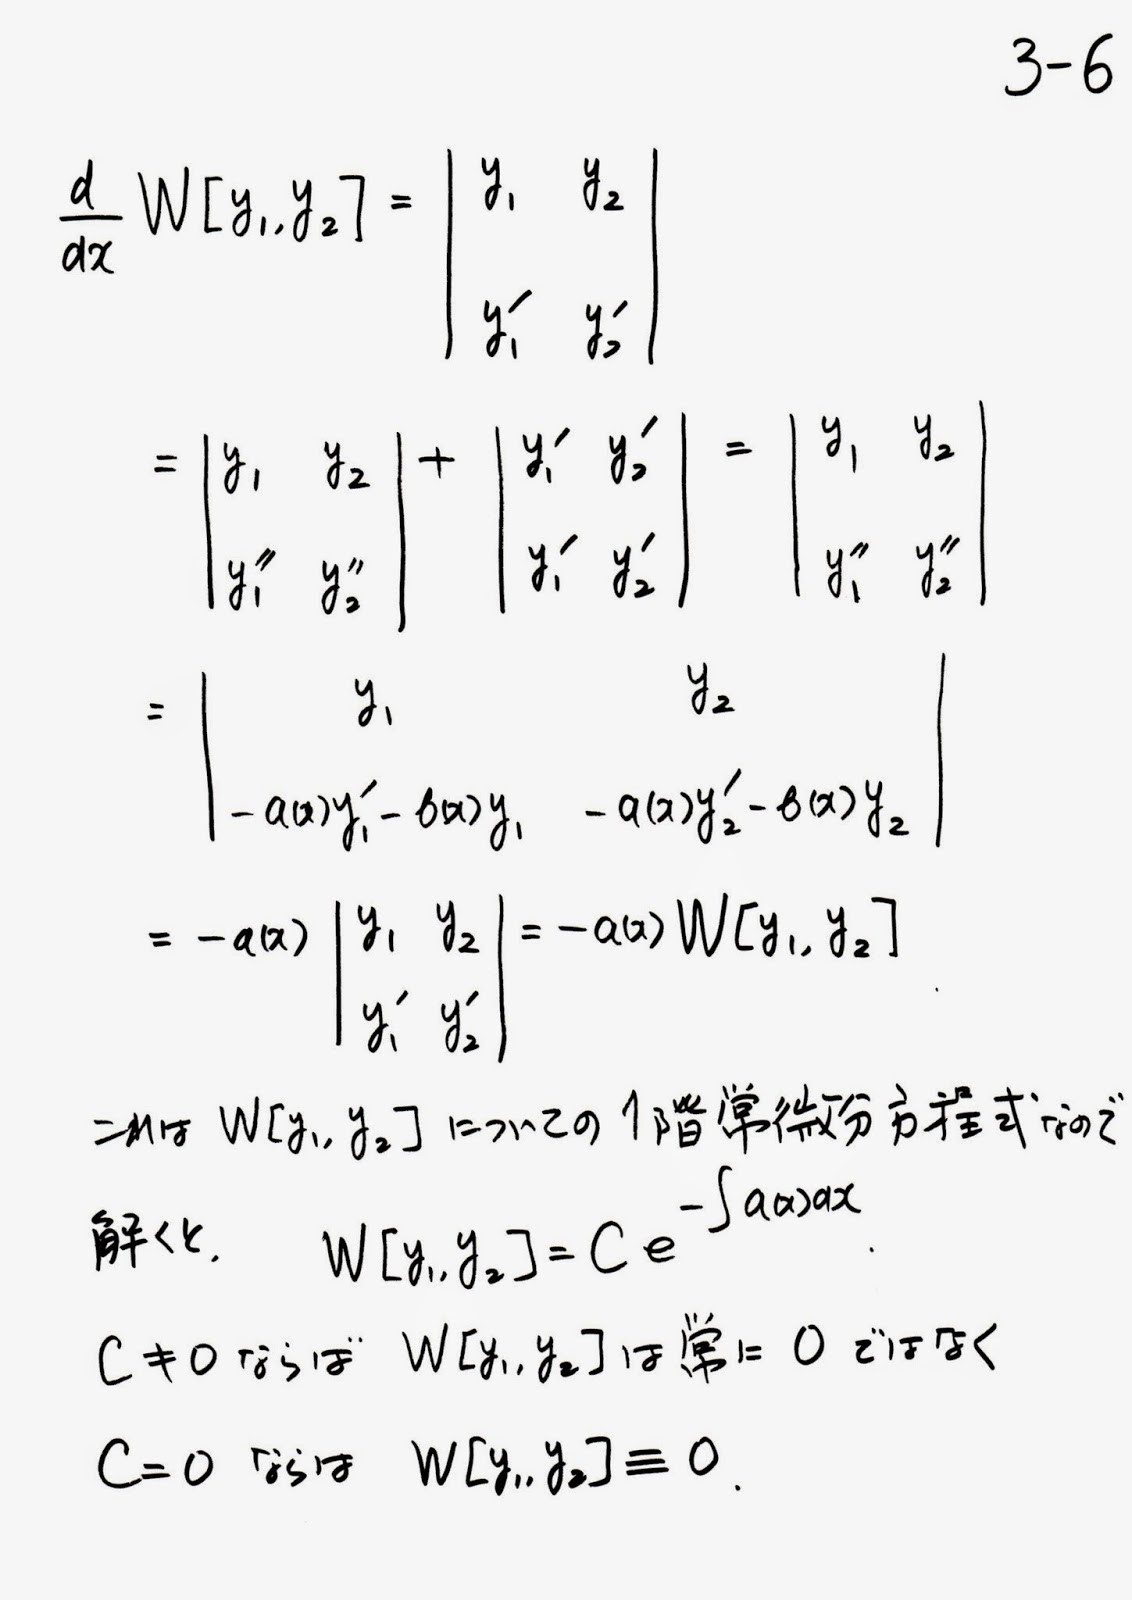 3-6
d/dx W[y₁, y₂] = | y₁ y₂ ; y₁′ y₂′ |
= | y₁ y₂ ; y₁″ y₂″ | + | y₁′ y₂′ ; y₁′ y₂′ | = | y₁ y₂ ; y₁″ y₂″ |
= | y₁ y₂ ; -a(x)y₁′-b(x)y₁ -a(x)y₂′-b(x)y₂ |
= -a(x) | y₁ y₂ ; y₁′ y₂′ | = -a(x) W[y₁, y₂]
これは W[y₁, y₂] についての 1階常微分方程式なので
解くと, W[y₁, y₂] = C e^{-∫a(x)dx}.
C≠0 ならば W[y₁, y₂] は常に 0 ではなく
C=0 ならば W[y₁, y₂] ≡ 0.